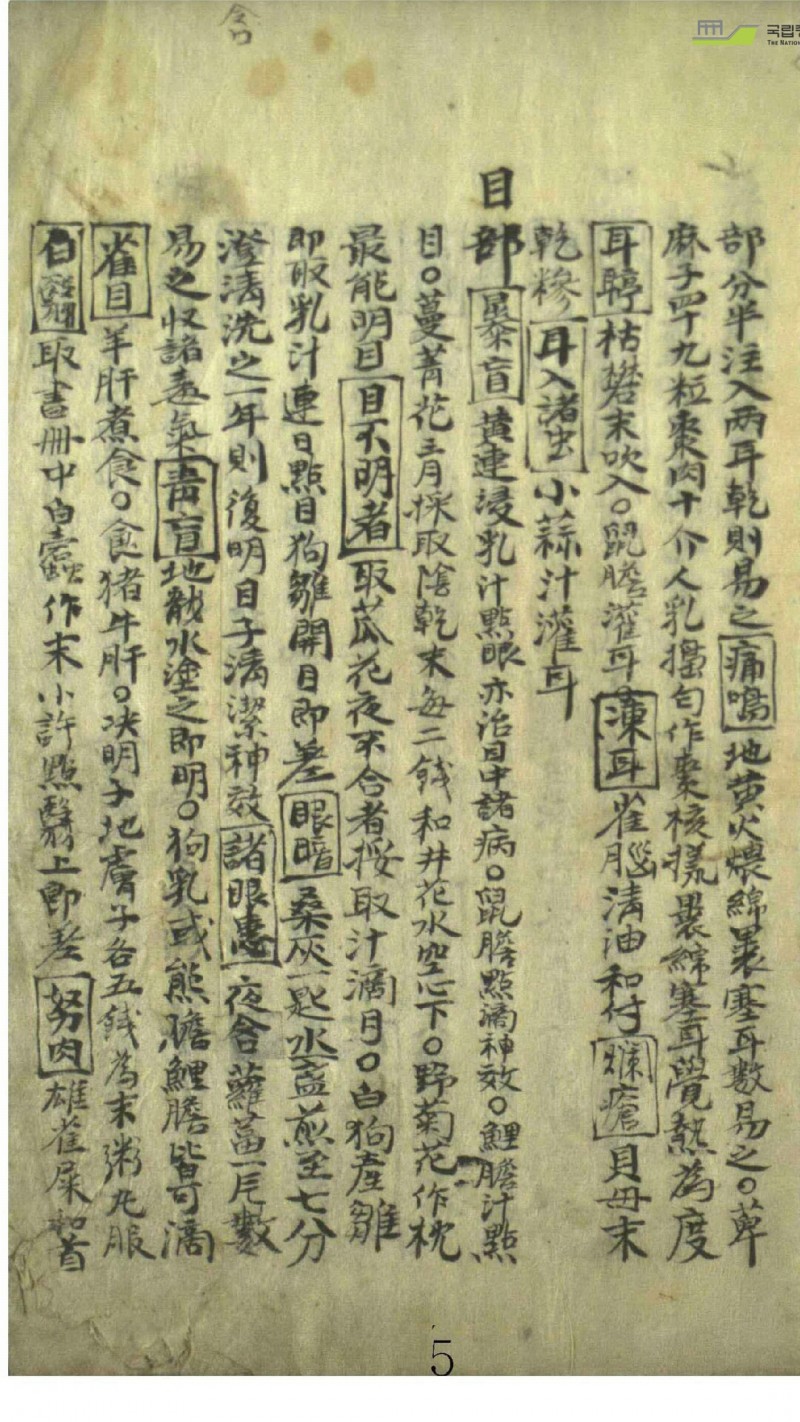 含
국립중
THE NATION
部分半注入兩耳乾則易之痛鳴地黄火煨綿裹塞耳数易之○萆
麻子四十九粒棗肉十介人乳擣匀作棗核㨾裹綿塞耳覺熱為度
耳聤枯礬末吹入○鼠膽灌耳凍耳雀腦淸油和付爛瘡貝毋末
乾糝耳入諸虫小蒜汁灌耳
目部暴盲黄連浸乳汁點眼亦治目中諸病○鼠膽點滴神效○鯉膽汁點
目○蔓菁花三月採取陰乾末每二錢和井花水空心下○野菊花作枕
最能明目目不明者取苽花夜不合者挼取汁滴目○白狗産雛
即取乳汁連日點目狗雛開目即差眼暗桑灰一匙水盞煎至七分
澄淸洗之一年則復明目子淸潔神效諸眼患夜合蘿葍一片數
易之收諸毒氣靑盲地髮水塗之即明○狗乳或熊膽鯉膽皆可滴
雀目羊肝煮食○食猪牛肝○决明子地膚子各五錢為末粥丸服
白翳取書冊中白蠹作末小許點翳上即差努肉雄雀屎和首
5